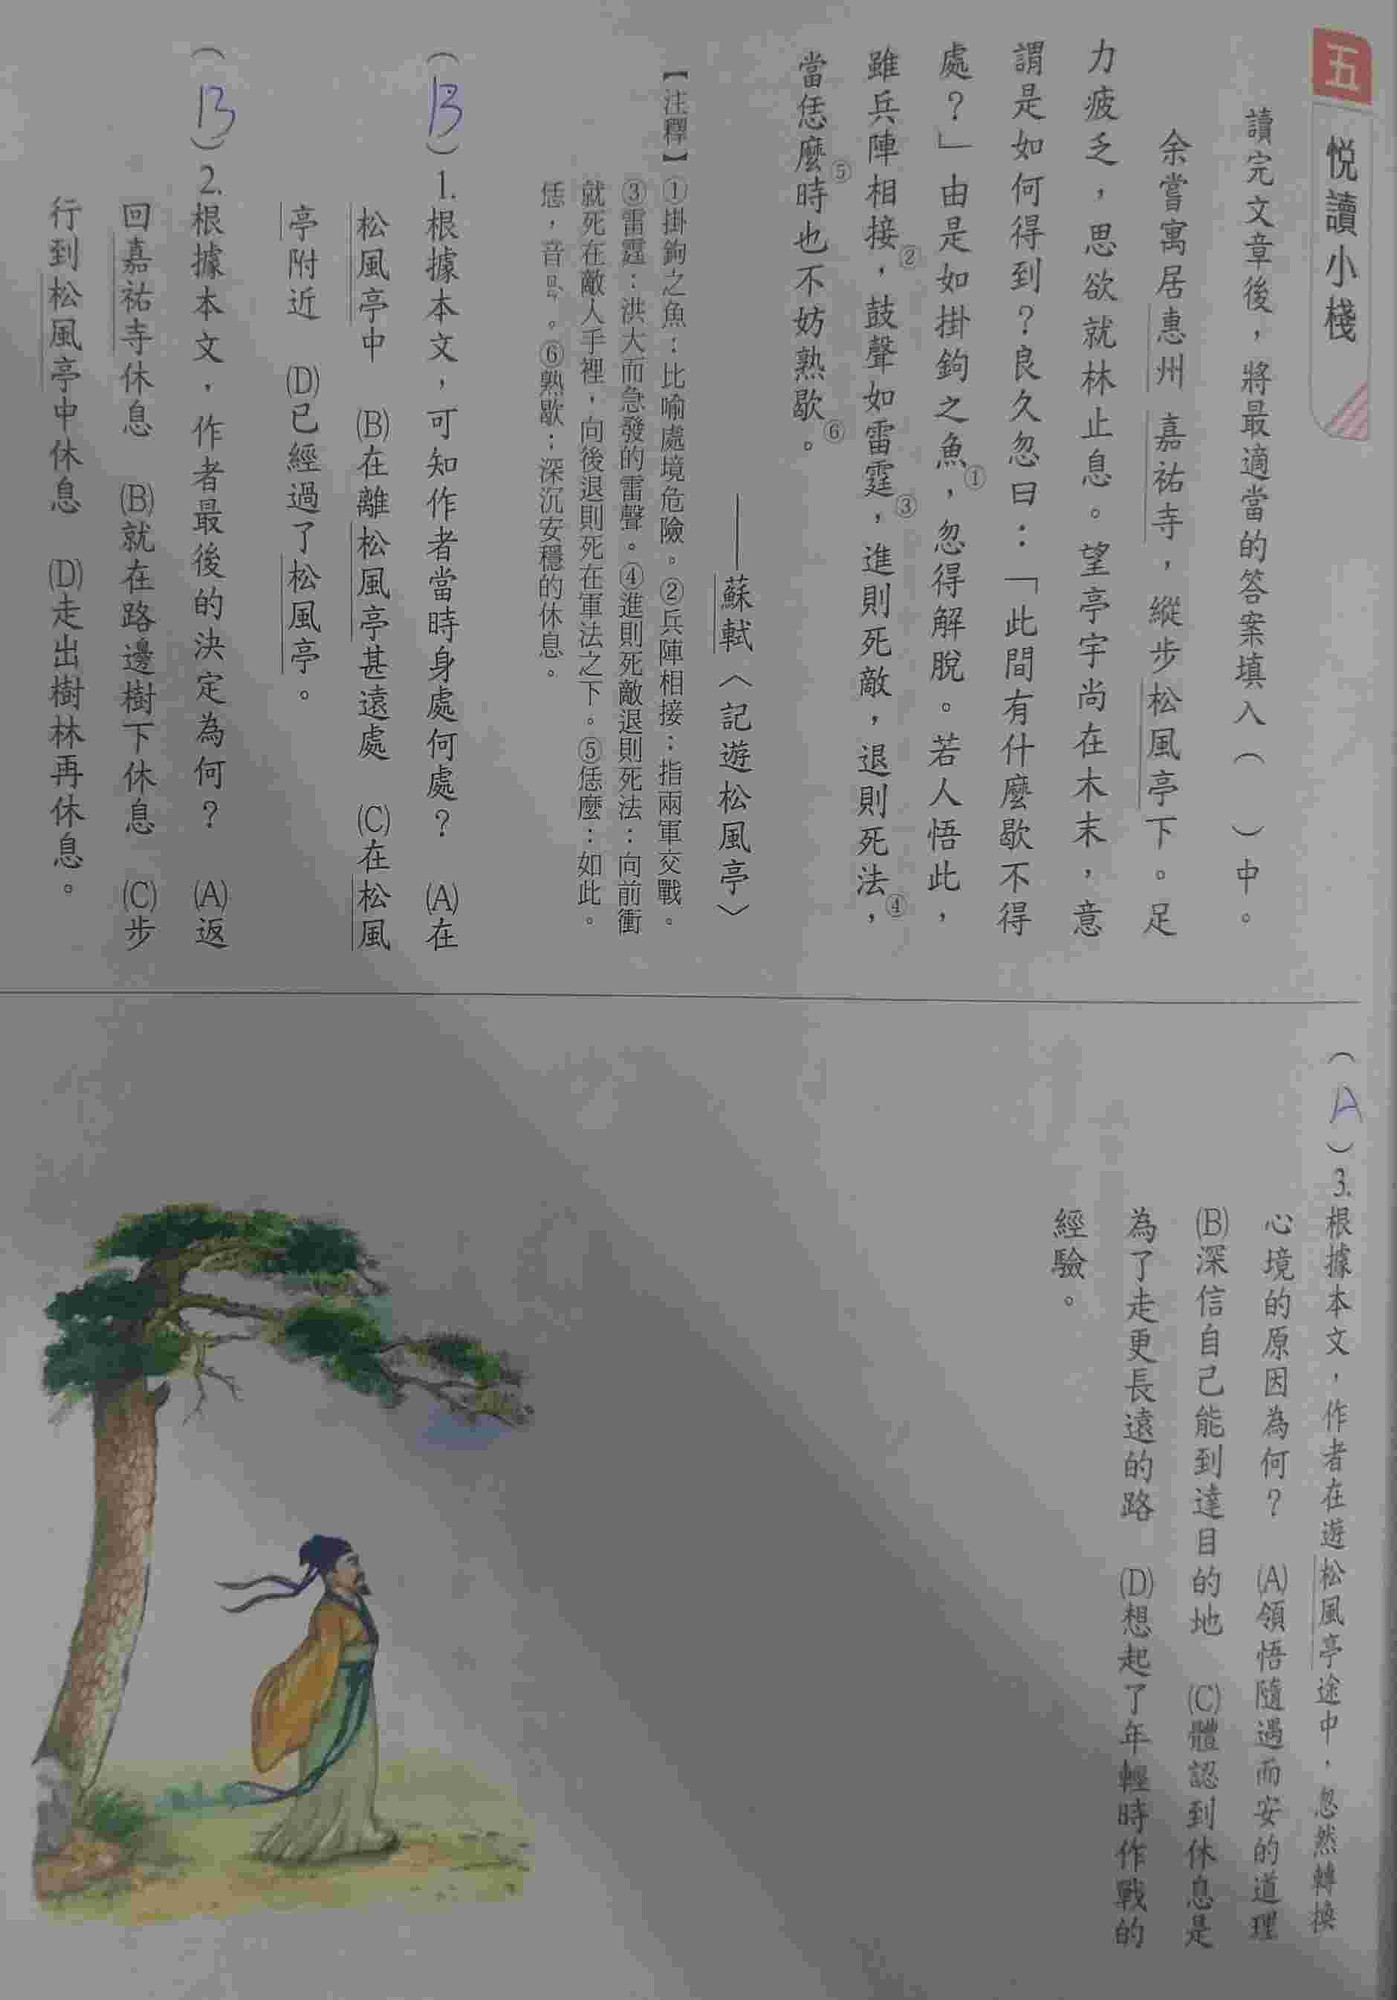 五 悅讀小棧
讀完文章後，將最適當的答案填入（　）中。
余嘗寓居惠州嘉祐寺，縱步松風亭下。足
力疲乏，思欲就林止息。望亭宇尚在木末，意
謂是如何得到？良久忽曰：「此間有什麼歇不得
處？」由是如掛鉤之魚①，忽得解脫。若人悟此，
雖兵陣相接②，鼓聲如雷霆③，進則死敵，退則死法④，
當恁麼⑤時也不妨熟歇⑥。
——蘇軾〈記遊松風亭〉
【注釋】①掛鉤之魚：比喻處境危險。②兵陣相接：指兩軍交戰。
③雷霆：洪大而急發的雷聲。④進則死敵退則死法：向前衝
就死在敵人手裡，向後退則死在軍法之下。⑤恁麼：如此。
恁，音ㄖㄣˋ。⑥熟歇：深沉安穩的休息。
（B）1.根據本文，可知作者當時身處何處？ (A)在
松風亭中 (B)在離松風亭甚遠處 (C)在松風
亭附近 (D)已經過了松風亭。
（B）2.根據本文，作者最後的決定為何？ (A)返
回嘉祐寺休息 (B)就在路邊樹下休息 (C)步
行到松風亭中休息 (D)走出樹林再休息。
（A）3.根據本文，作者在遊松風亭途中，忽然轉換
心境的原因為何？ (A)領悟隨遇而安的道理
(B)深信自己能到達目的地 (C)體認到休息是
為了走更長遠的路 (D)想起了年輕時作戰的
經驗。